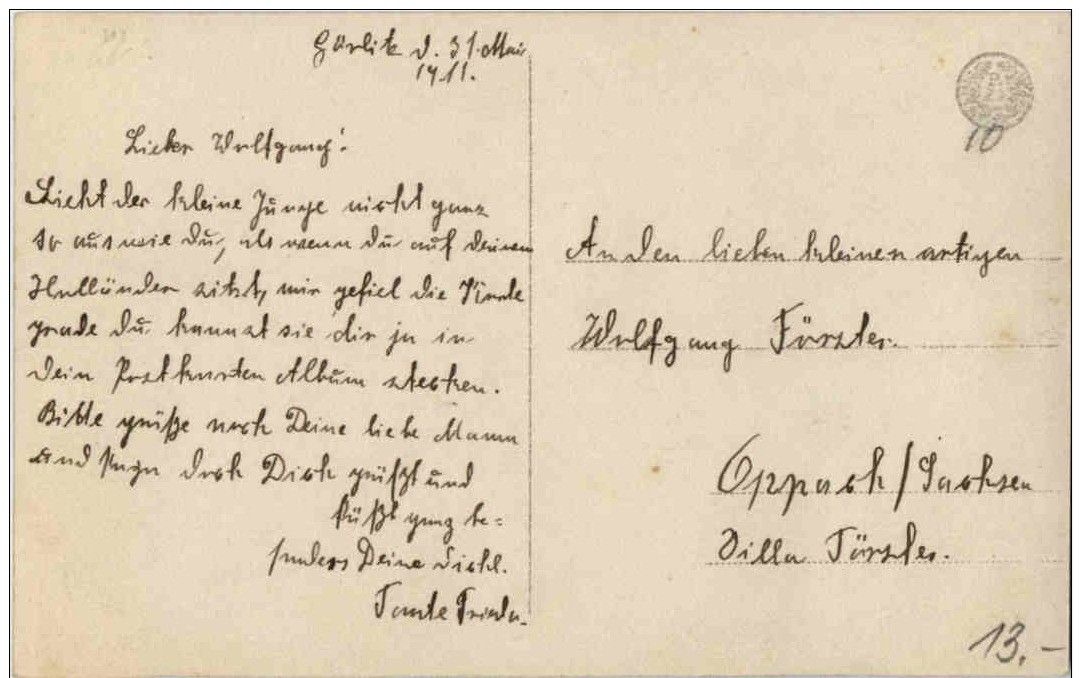 Görlitz d. 31. Mai
1911.
Lieber Wolfgang!
Sieht der kleine Junge nicht ganz
so aus wie du, als wenn du auf deinem
Holländer sitzt, mir gefiel die Karte
grade du kannst sie dir ja in
dein Postkarten Album stecken.
Bitte grüße noch Deine liebe Mama
und Papa doch Dich grüßt und
küßt ganz be=
sonders Deine
Tante Frieda.
An den lieben kleinen artigen
Wolfgang Förster.
Oppach / Sachsen
Villa Förster.
10
13.-